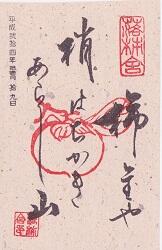 落柿舎
柿主や
梢はちかき
あらし山
平成弐拾四年 拾九日